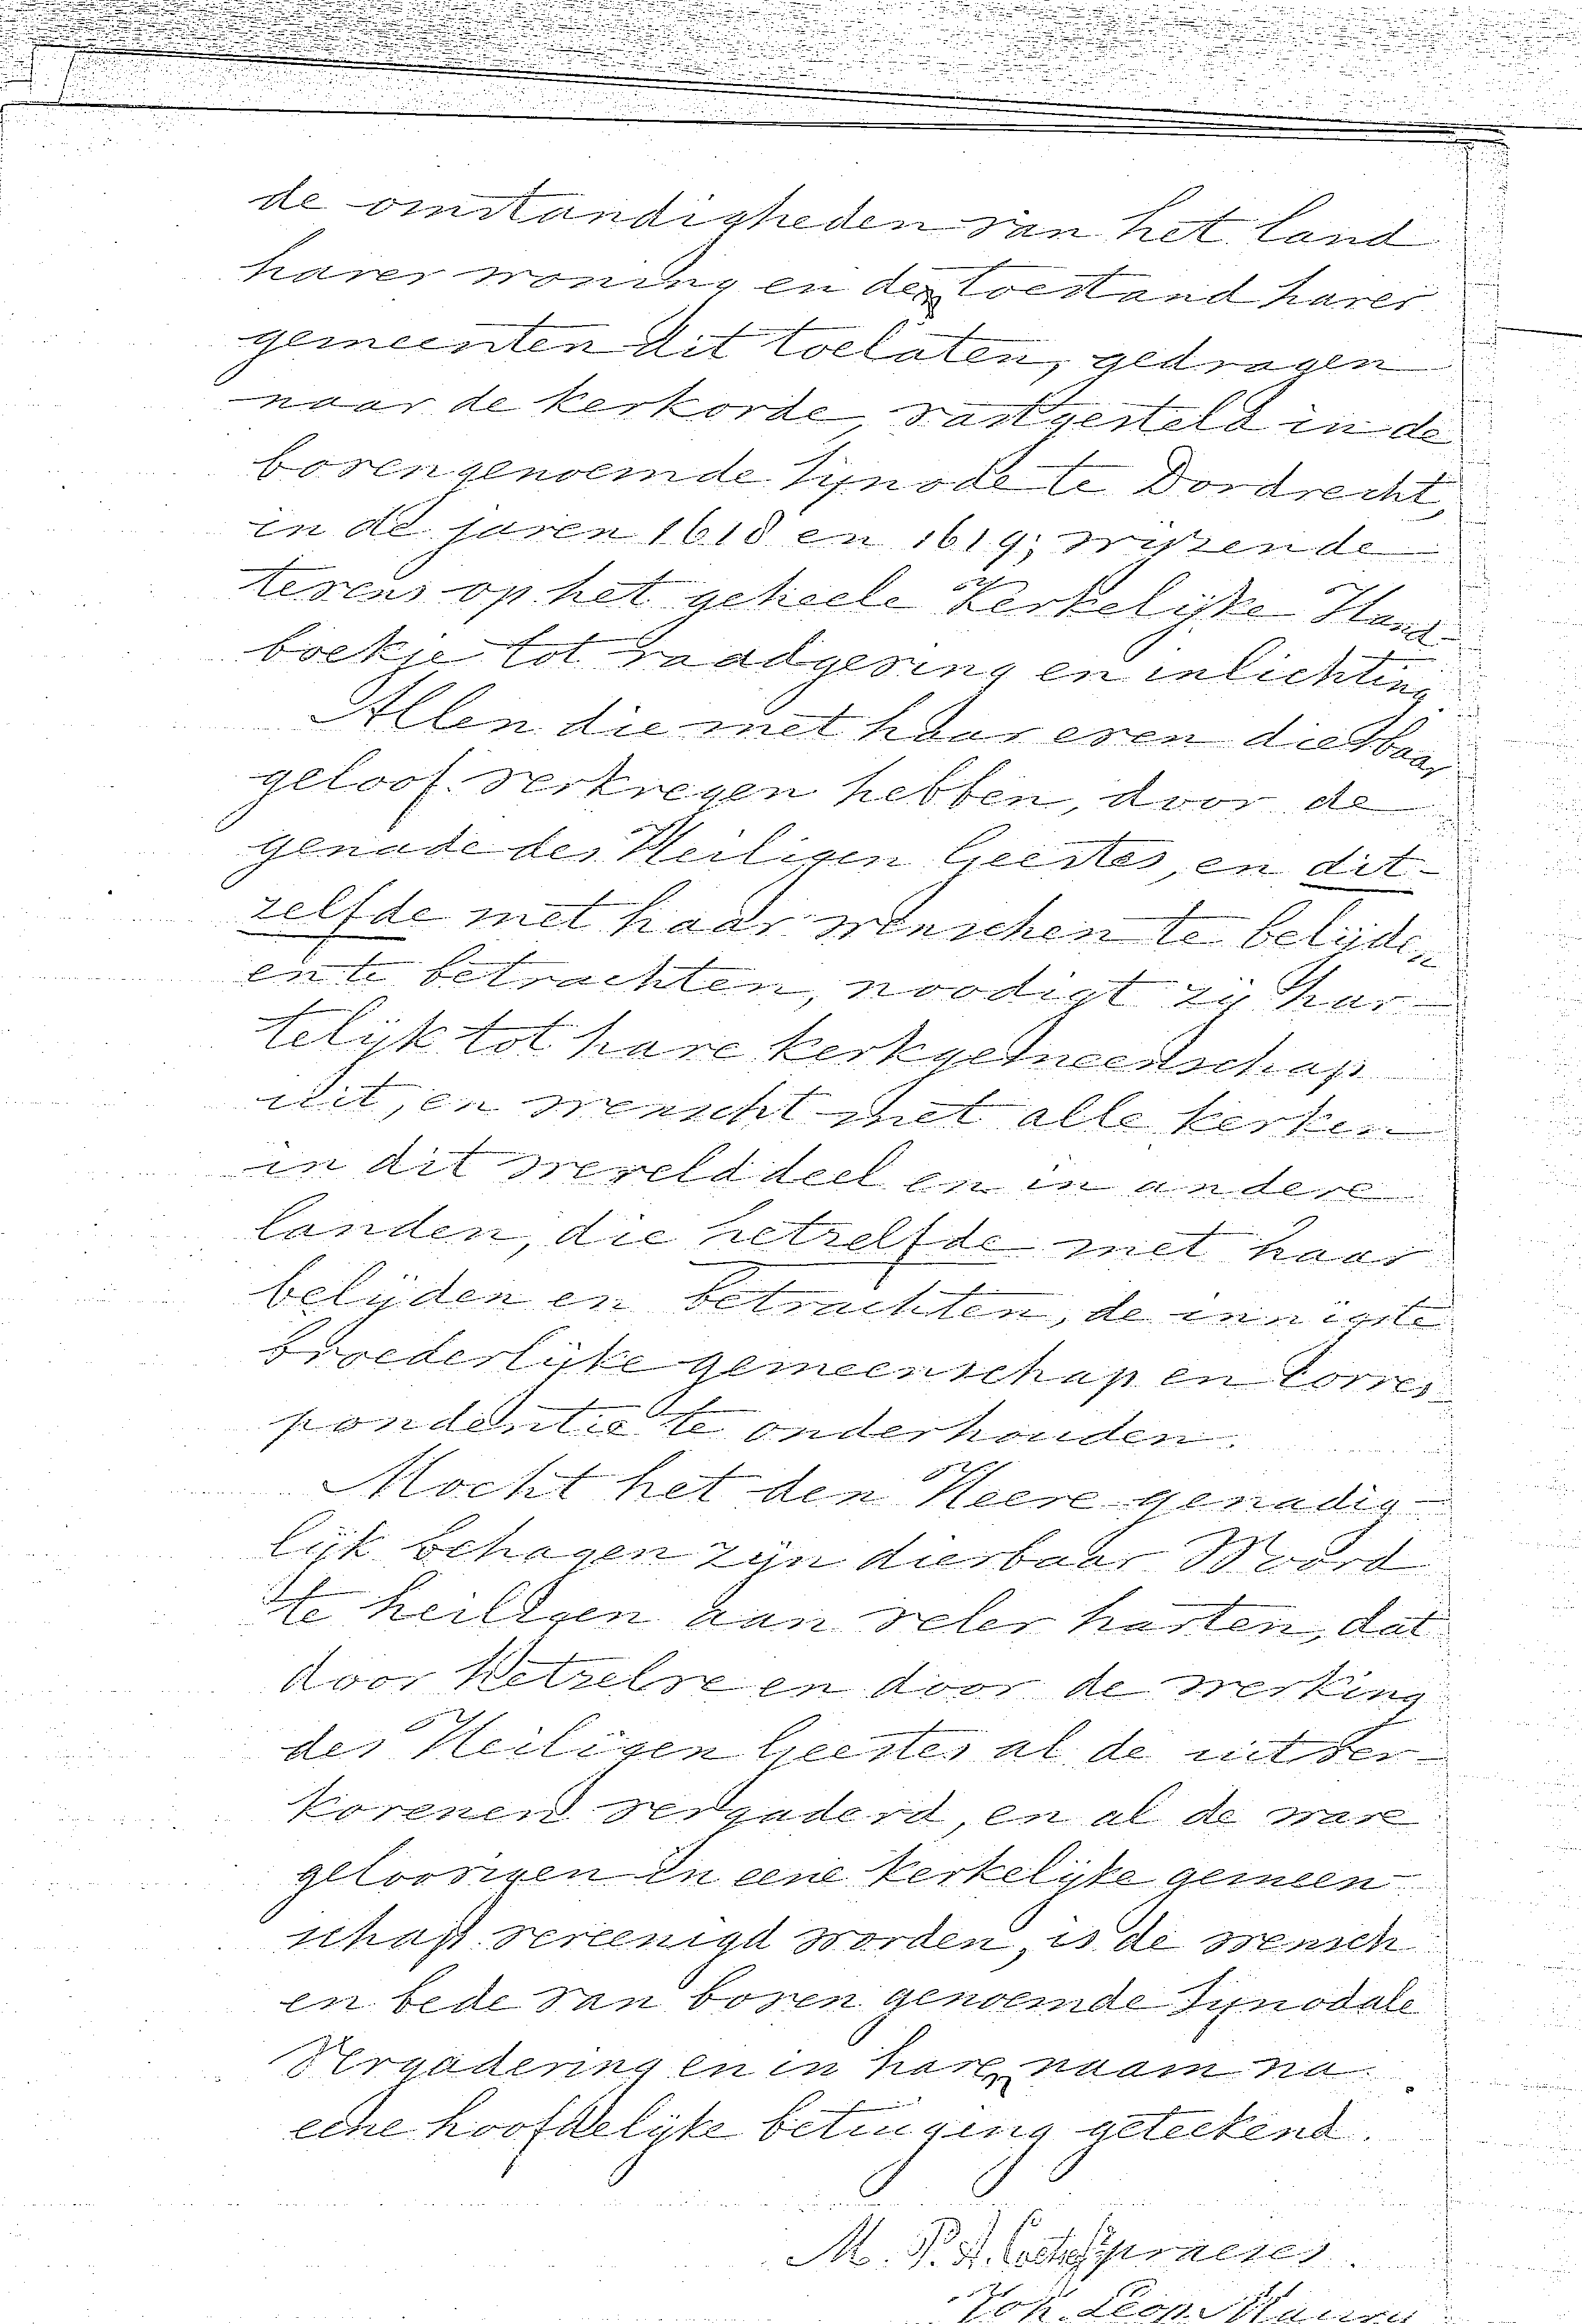 de omstandigheden van het land
harer woning en de toestand harer
gemeenten dit toelaten, gedragen
naar de kerkorde, vastgesteld in de
bovengenoemde Synode te Dordrecht,
in de jaren 1618 en 1619; wijzende
tevens op het geheele Kerkelijke Hand-
boekje tot raadgeving en inlichting.
Allen die met haar even dierbaar
geloof verkregen hebben, door de
genade des Heiligen Geestes, en dit-
zelfde met haar wenschen te belijden
en te betrachten, noodigt zij har-
telijk tot hare kerkgemeenschap
uit, en wenscht met alle kerken
in dit werelddeel en in andere
landen, die hetzelfde met haar
belijden en betrachten, de innigste
broederlijke gemeenschap en corres-
pondentie te onderhouden.
Mocht het den Heere genadig-
lijk behagen zijn dierbaar Woord
te heiligen aan veler harten, dat
door hetzelve en door de werking
des Heiligen Geestes al de uitver-
korenen vergaderd, en al de ware
geloovigen in eene kerkelijke gemeen-
schap vereenigd worden, is de wensch
en bede van boven genoemde Synodale
Vergadering en in hare naam na
eene hoofdelijke betuiging geteekend.
M. P. A. praeses.
Joh. Leop. Maury